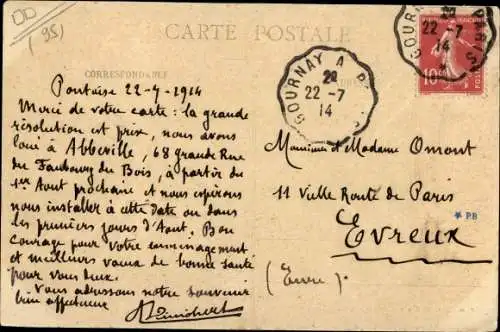 CARTE POSTALE
(95)
CORRESPONDANCE
Pontoise 22-7-1914
Merci de votre carte : la grande
résolution est prise, nous avons
loué à Abbeville, 68 Grande Rue
du Faubourg du Bois, à partir du
1er Aout prochain et nous espérons
nous installer à cette date ou dans
les premiers jours d'Aout. Bon
courage pour votre emménagement
et meilleurs vœux de bonne santé
pour vous deux.
Vous adressons notre souvenir
bien affectueux
GOURNAY A
22-7
14
GOURNAY
22-7
14
10
Monsieur et Madame Omont
11 Vielle Route de Paris
PB
Evreux
(Eure).